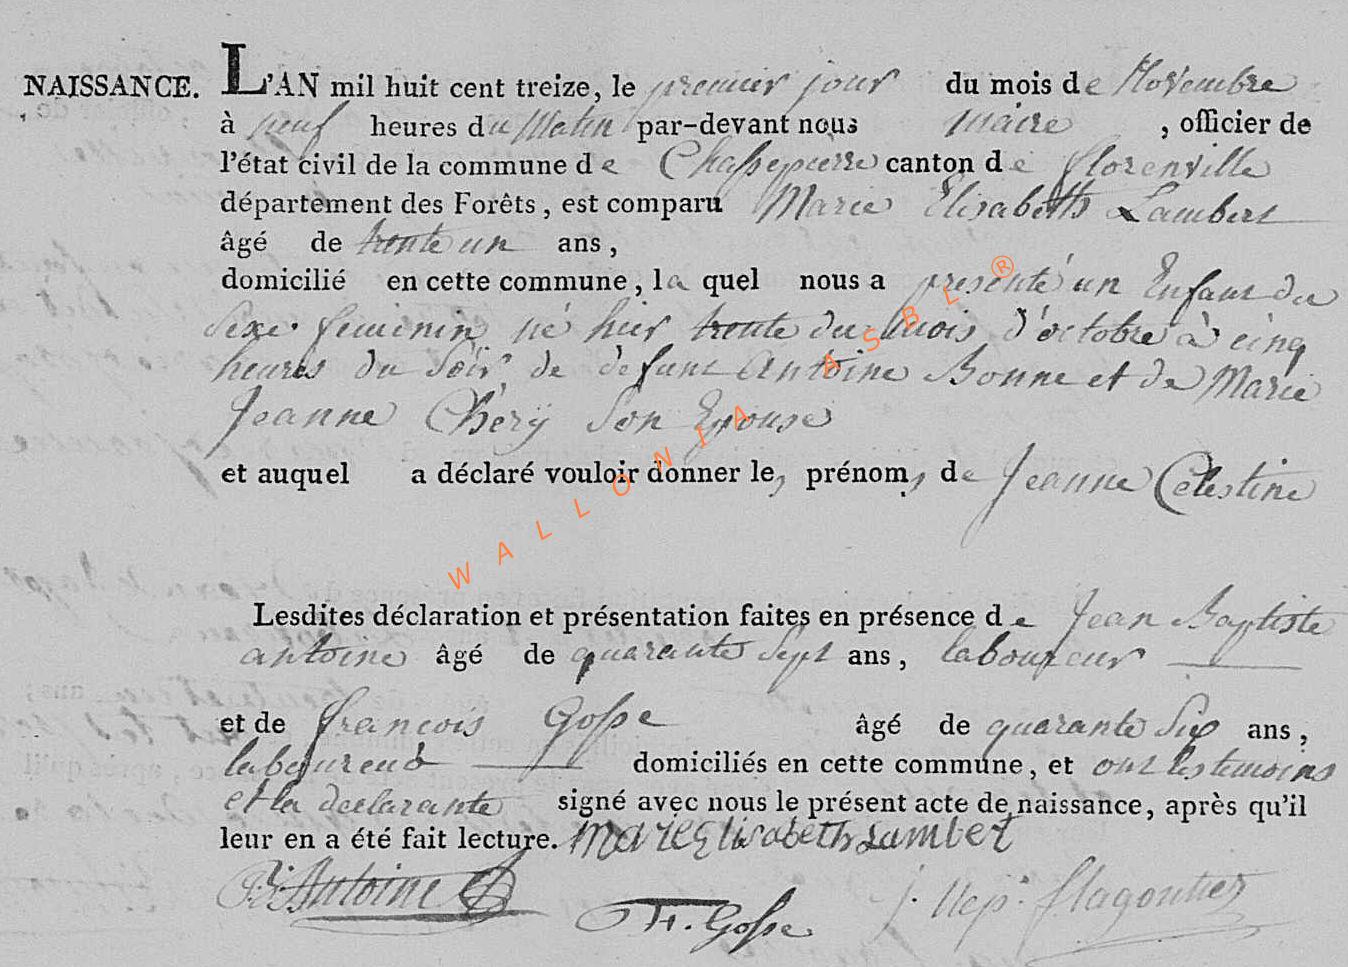 NAISSANCE. L'AN mil huit cent treize, le premier jour du mois de Novembre
à neuf heures du Matin par-devant nous maire , officier de
l'état civil de la commune de Chassepierre canton de florenville
département des Forêts, est comparu Marie Elisabeth Lambert
âgé de trente un ans,
domicilié en cette commune, la quel nous a presenté un Enfant du
Sexe feminin né hier trente du mois d'octobre à cinq
heures du Soir de defunt Antoine Bonne et de Marie
Jeanne Chéry Son Epouse
et auquel a déclaré vouloir donner les prénoms de Jeanne Celestine
Lesdites déclaration et présentation faites en présence de Jean Baptiste
antoine âgé de quarante Sept ans, laboureur
et de francois Gosse âgé de quarante Six ans,
laboureur domiciliés en cette commune, et ont les temoins
et la declarante signé avec nous le présent acte de naissance, après qu'il
leur en a été fait lecture. Marie Elisabeth Lambert
B. Antoine F. Gosse J. Nep. flagontier
WALLONIA ASBL ®